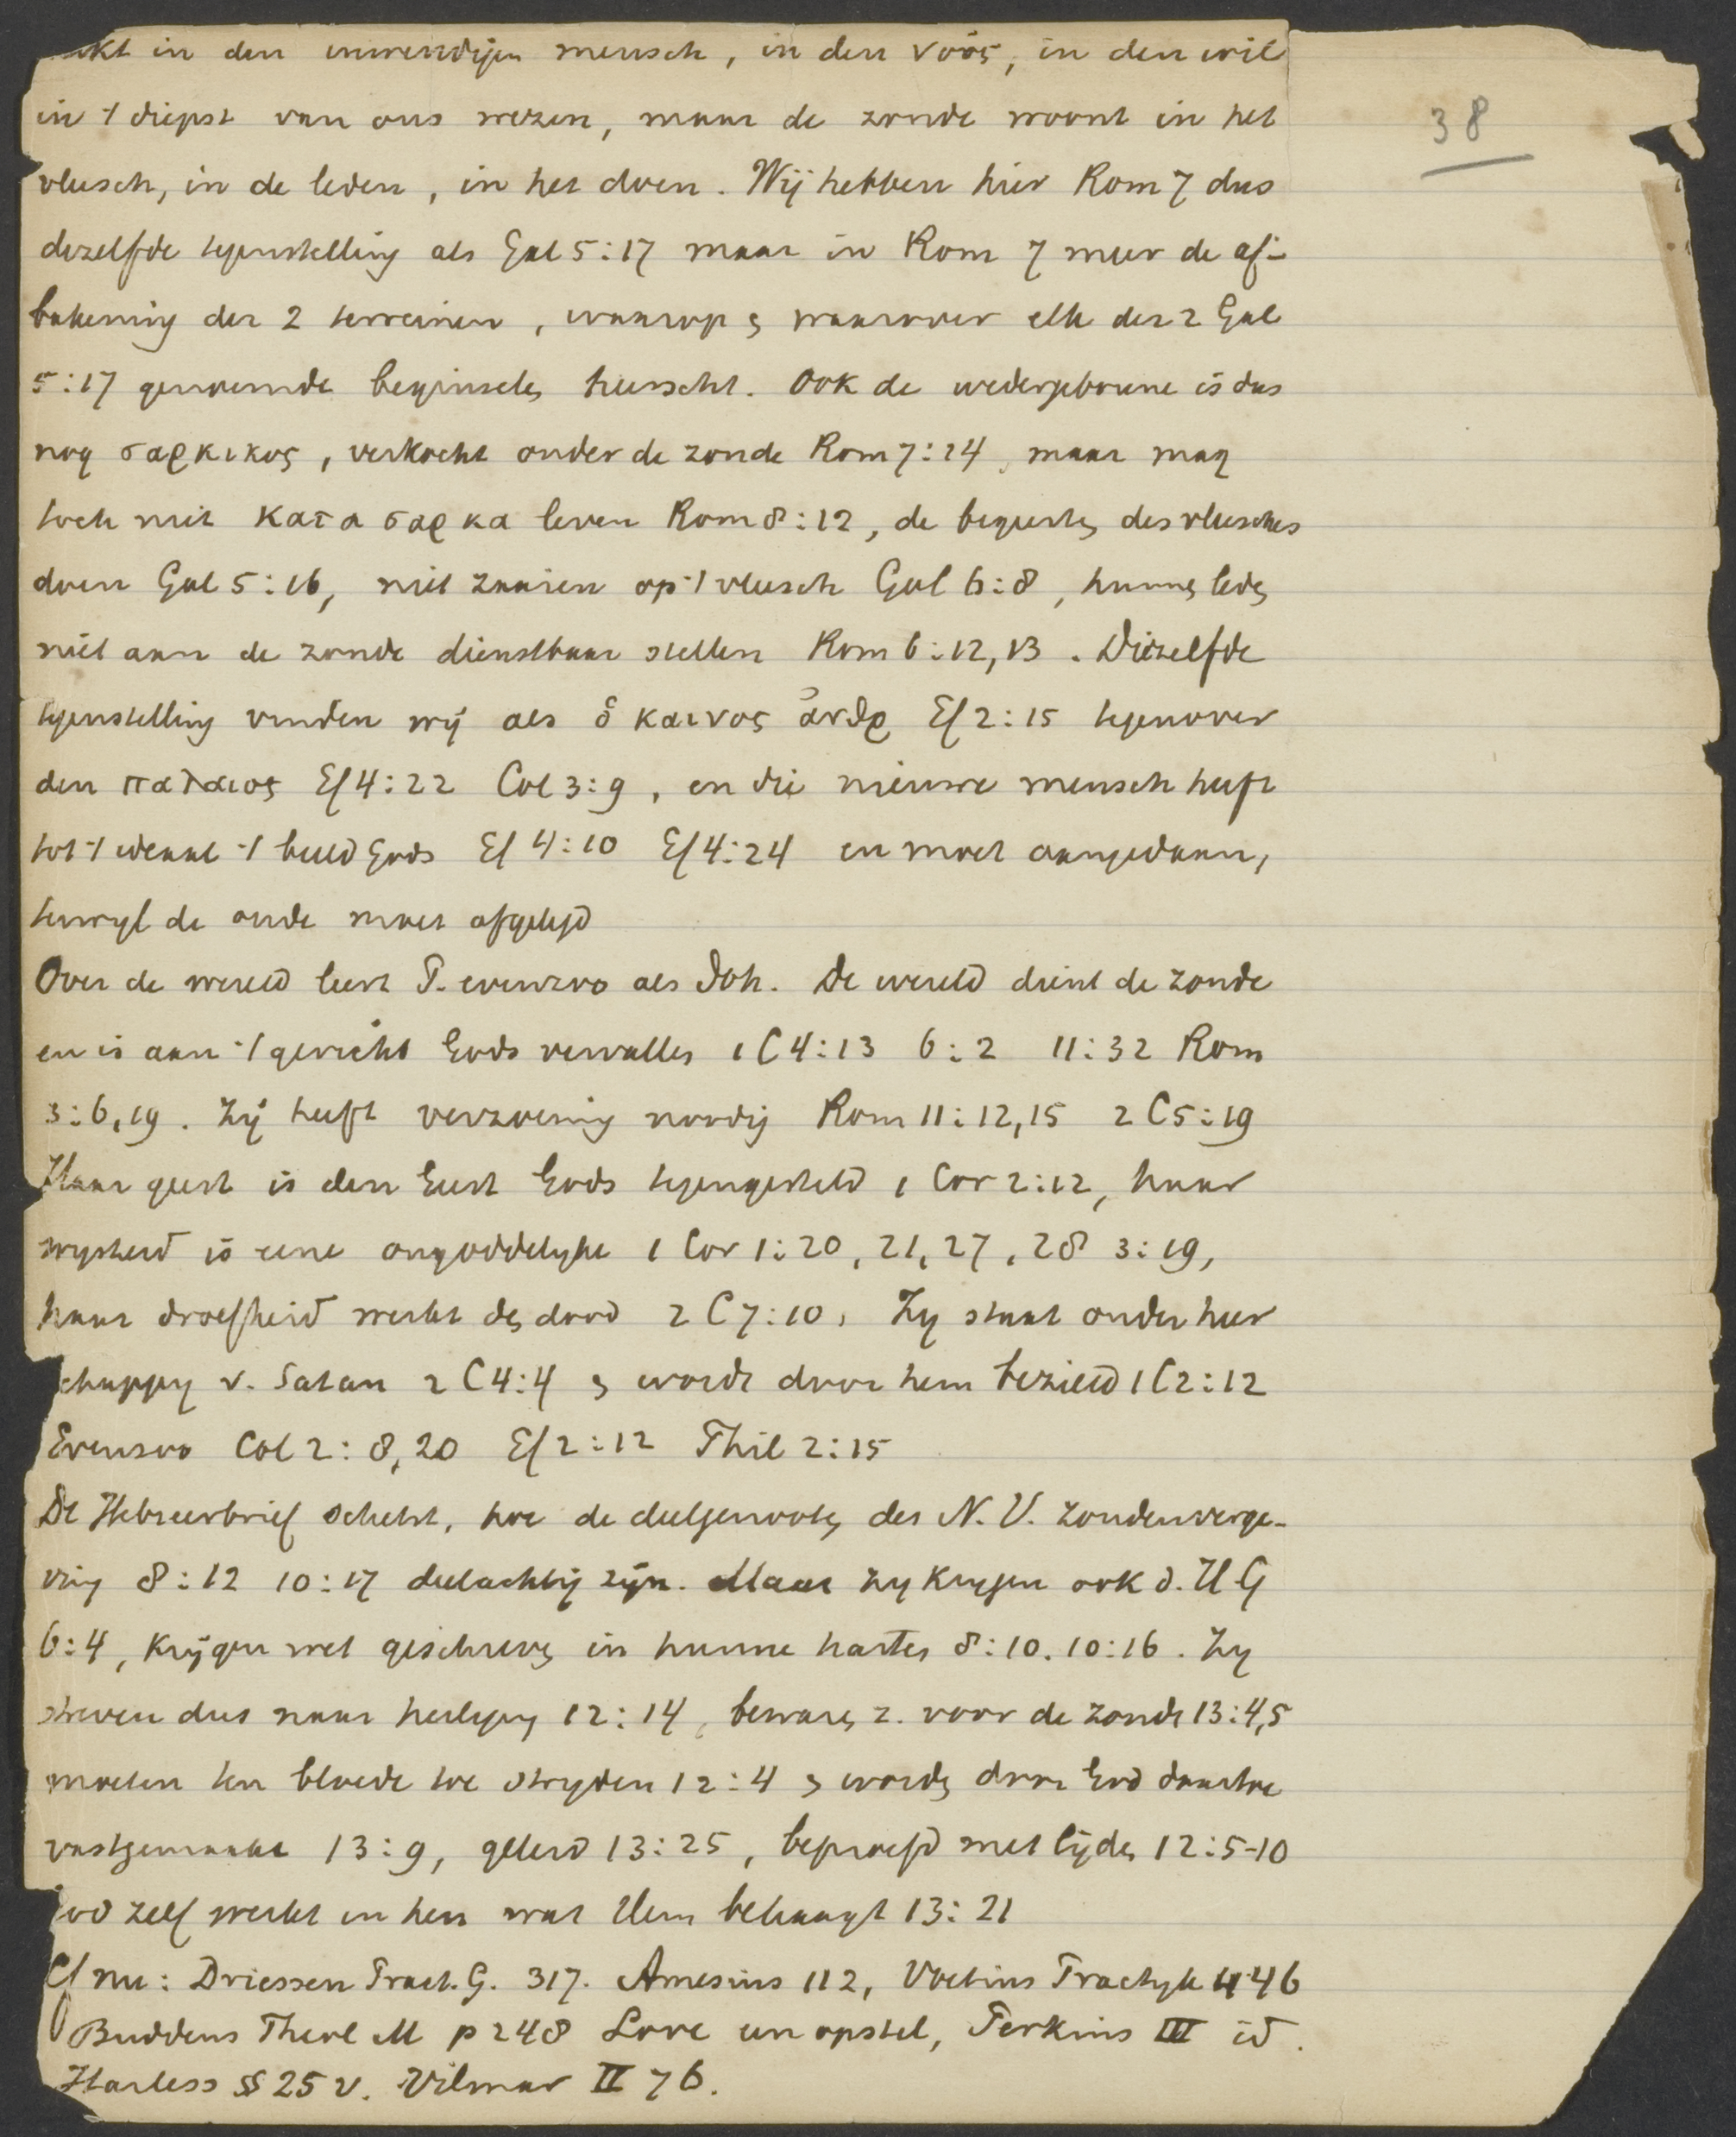 in den inwendigen mensch, in den νοῦς, in den wil
38
in 't diepst van ons wezen, maar de zonde woont in het
vleesch, in de leden, in het doen. Wij hebben hier Rom 7 dus
dezelfde tegenstelling als Gal 5:17 maar in Rom 7 meer de af-
bakening der 2 terreinen, waarop & waarover elk der 2 Gal
5:17 genoemde beginselen heerscht. Ook de wedergeborene is dus
nog σαρκικος, verkocht onder de zonde Rom 7:14, maar mag
toch niet κατα σαρκα leven Rom 8:12, de begeerten des vleesches
doen Gal 5:16, niet zaaien op 't vleesch Gal 6:8, hunne leden
niet aan de zonde dienstbaar stellen Rom 6:12,13. Diezelfde
tegenstelling vinden wij als ὁ καινος ἀνθρ Ef 2:15 tegenover
den παλαιος Ef 4:22 Col 3:9, en die nieuwe mensch heeft
tot 't ideaal 't beeld Gods Ef 4:10 Ef 4:24 en moet aangedaan,
terwyl de oude moet afgelegd
Over de wereld leert P. evenzoo als Joh. De wereld dient de zonde
en is aan 't gericht Gods vervallen 1 C 4:13 6:2 11:32 Rom
3:6,19. Zij heeft verzoening noodig Rom 11:12,15 2 C 5:19
Haar geest is den Geest Gods tegengesteld 1 Cor 2:12, haar
wysheid is eene ongoddelyke 1 Cor 1:20, 21, 27, 28 3:19,
haar droefheid werkt den dood 2 C 7:10, Zy staat onder heer
chappy v. Satan 2 C 4:4 & wordt door hem bezield 1 C 2:12
Evenzoo Col 2:8,20 Ef 2:12 Phil 2:15
De Hebreerbrief schetst, hoe de deelgenooten des N. V. zondenverge-
ving 8:12 10:17 deelachtig zijn. Maar zy krygen ook d. H G
6:4, krijgen wet geschreven in hunne harten 8:10. 10:16. Zy
streven dus naar heiliging 12:14, bewaren z. voor de zonde 13:4,5
moeten ten bloede toe stryden 12:4 & worden door God daartoe
vastgemaakt 13:9, geleerd 13:25, beproefd met lijden 12:5-10
God zelf werkt in hen wat Hem behaagt 13:21
Cf nu: Driessen Pract. G. 317. Amesius 112, Voetius Practyk 446
Buddeus Theol M p 248 Love een opstel, Perkins III id.
Harless §§ 25 v. Vilmar II 76.